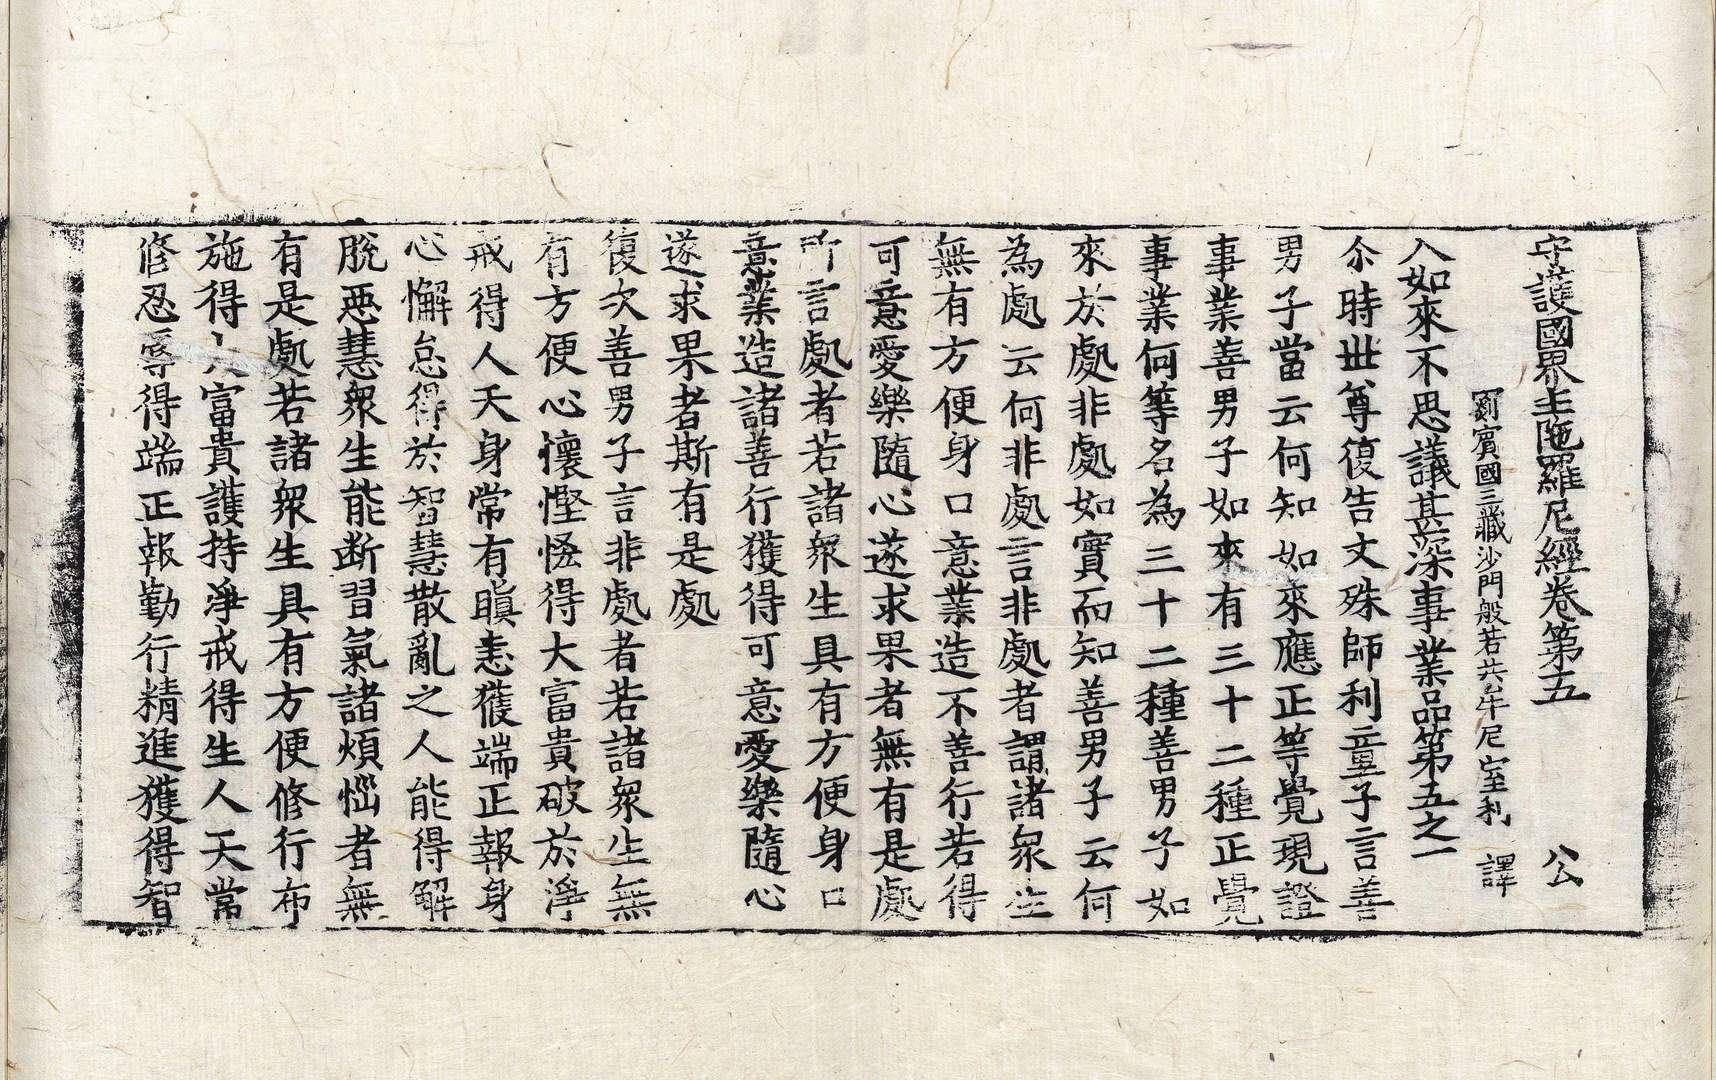 守護國界主陁羅尼經卷第五　公
罽賓國三藏沙門般若共牟尼室利　譯
入如來不思議甚深事業品第五之一
尒時世尊復告文殊師利童子言善
男子當云何知如來應正等覺現證
事業善男子如來有三十二種正覺
事業何等名為三十二種善男子如
來於處非處如實而知善男子云何
為處云何非處言非處者謂諸衆生
無有方便身口意業造不善行若得
可意愛樂隨心遂求果者無有是處
所言處者若諸衆生具有方便身口
意業造諸善行獲得可意愛樂隨心
遂求果者斯有是處
復次善男子言非處者若諸衆生無
有方便心懷慳悋得大富貴破於淨
戒得人天身常有瞋恚獲端正報身
心懈怠得於智慧散亂之人能得解
脫惡慧衆生能断習氣諸煩惱者無
有是處若諸衆生具有方便修行布
施得大富貴護持淨戒得生人天常
修忍辱得端正報勤行精進獲得智